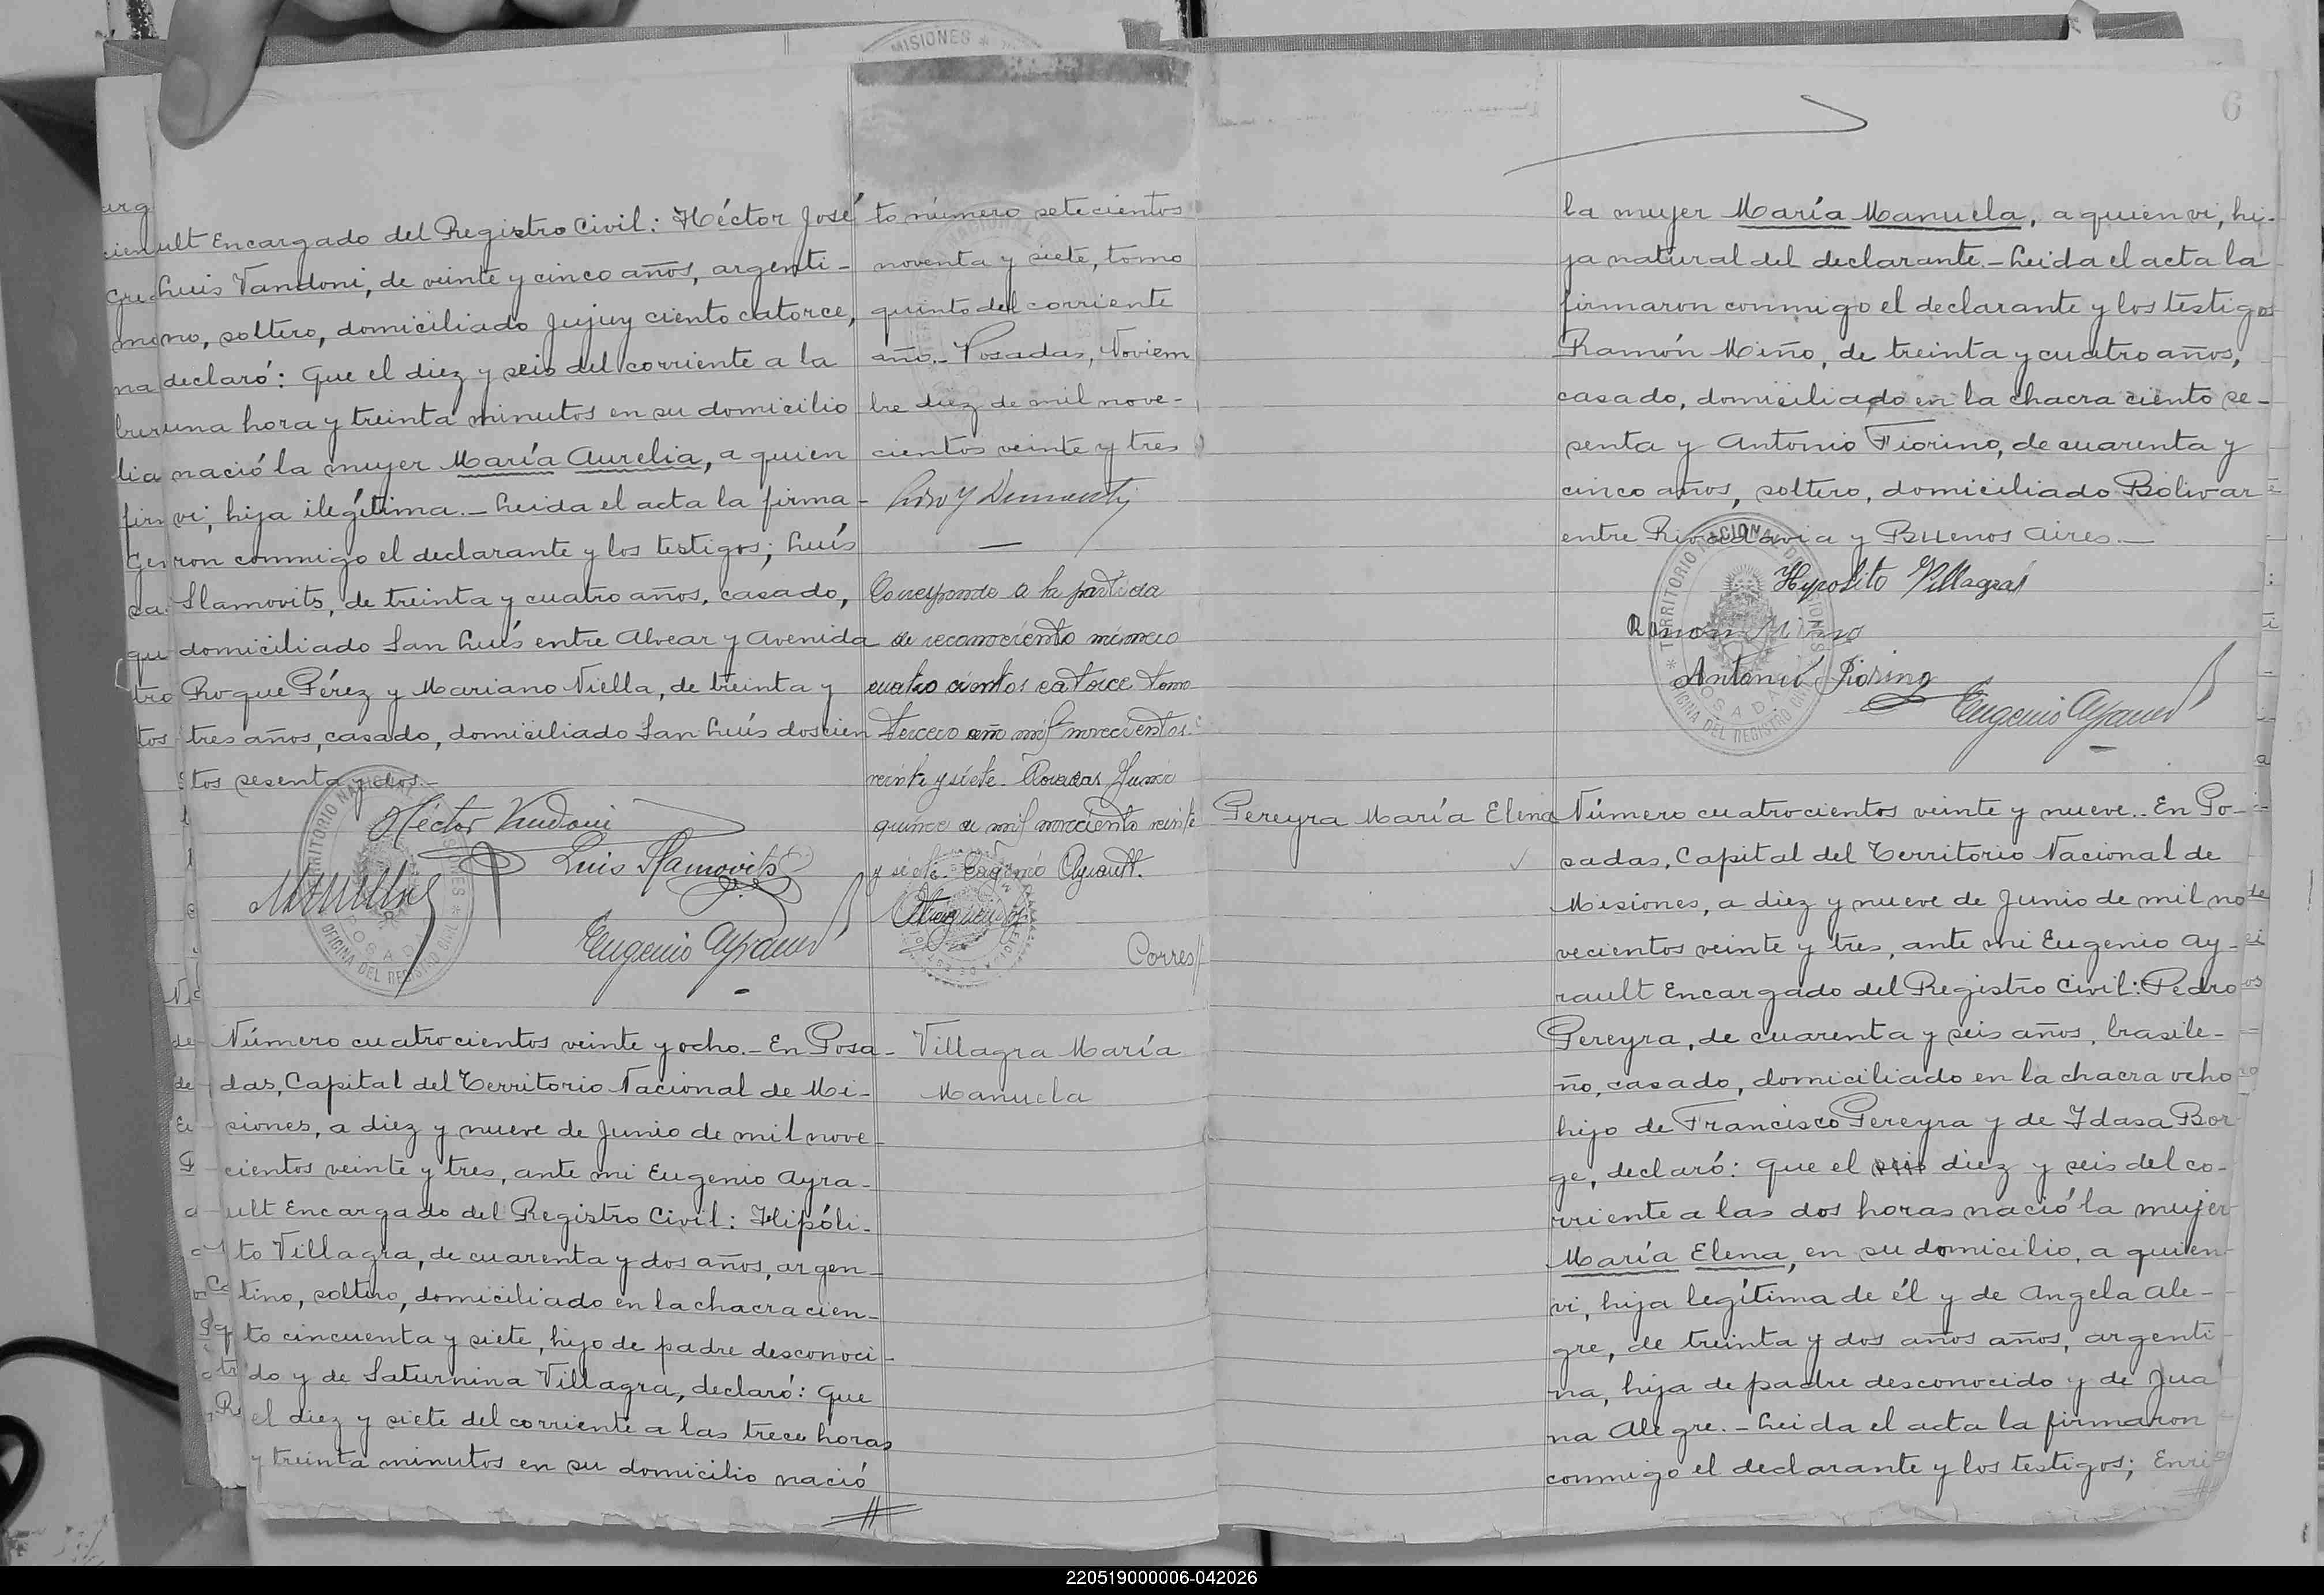 ult Encargado del Registro Civil: Héctor José
Luis Vandoni, de veinte y cinco años, argenti-
no, soltero, domiciliado Jujuy ciento catorce,
declaró: Que el diez y seis del corriente a la
una hora y treinta minutos en su domicilio
nació la mujer María Aurelia, a quien
vi, hija ilegítima.- Leida el acta la firma-
ron conmigo el declarante y los testigos; Luís
Slamovits, de treinta y cuatro años, casado,
domiciliado San Luís entre Alvear y Avenida
Roque Pérez y Mariano Viella, de treinta y
tres años, casado, domiciliado San Luís doscien
tos sesenta y dos.-
Héctor Vandoni
Luis Slamovits
Eugenio Ayrault
to número setecientos
noventa y siete, tomo
quinto del corriente
año.- Posadas, Noviem
bre diez de mil nove-
cientos veinte y tres
Corresponde a la partida
de reconociento número
cuatro cientos catorce tomo
tercero año mil novecientos
veinte y siete. Posadas Junio
quince de mil novecientos veinte
y siete. Eugenio Ayrault.
Corres//
MISIONES
TERRITORIO NACIONAL DE MISIONES
OFICINA DEL REGISTRO CIVIL
POSADAS
Número cuatrocientos veinte y ocho.- En Posa-
das, Capital del Territorio Nacional de Mi-
siones, a diez y nueve de Junio de mil nove-
cientos veinte y tres, ante mi Eugenio Ayra-
ult Encargado del Registro Civil: Hipóli-
to Villagra, de cuarenta y dos años, argen-
tino, soltero, domiciliado en la chacra cien-
to cincuenta y siete, hijo de padre desconoci-
do y de Saturnina Villagra, declaró: Que
el diez y siete del corriente a las trece horas
y treinta minutos en su domicilio nació
Villagra María
Manuela
6
la mujer María Manuela, a quien vi, hi-
ja natural del declarante.- Leida el acta la
firmaron conmigo el declarante y los testigos
Ramón Miño, de treinta y cuatro años,
casado, domiciliado en la chacra ciento se-
senta y Antonio Fiorino, de cuarenta y
cinco años, soltero, domiciliado Bolivar
entre Rivadavia y Buenos Aires.-
Hypolito Villagras
Ramon Miño
Antonio Fiorino
Eugenio Ayrault
TERRITORIO NACIONAL DE MISIONES
OFICINA DEL REGISTRO CIVIL
POSADAS
Pereyra María Elena
Número cuatrocientos veinte y nueve.- En Po-
sadas, Capital del Territorio Nacional de
Misiones, a diez y nueve de Junio de mil no
vecientos veinte y tres, ante mi Eugenio Ay-
rault Encargado del Registro Civil: Pedro
Pereyra, de cuarenta y seis años, brasile-
ño, casado, domiciliado en la chacra ocho
hijo de Francisco Pereyra y de Idasa Bor
ge, declaró: Que el seis diez y seis del co-
rriente a las dos horas nació la mujer
María Elena, en su domicilio, a quien
vi, hija legítima de él y de Angela Ale-
gre, de treinta y dos años años, argenti-
na, hija de padre desconocido y de Jua
na Alegre.- Leida el acta la firmaron
conmigo el declarante y los testigos; Enri
220519000006-042026